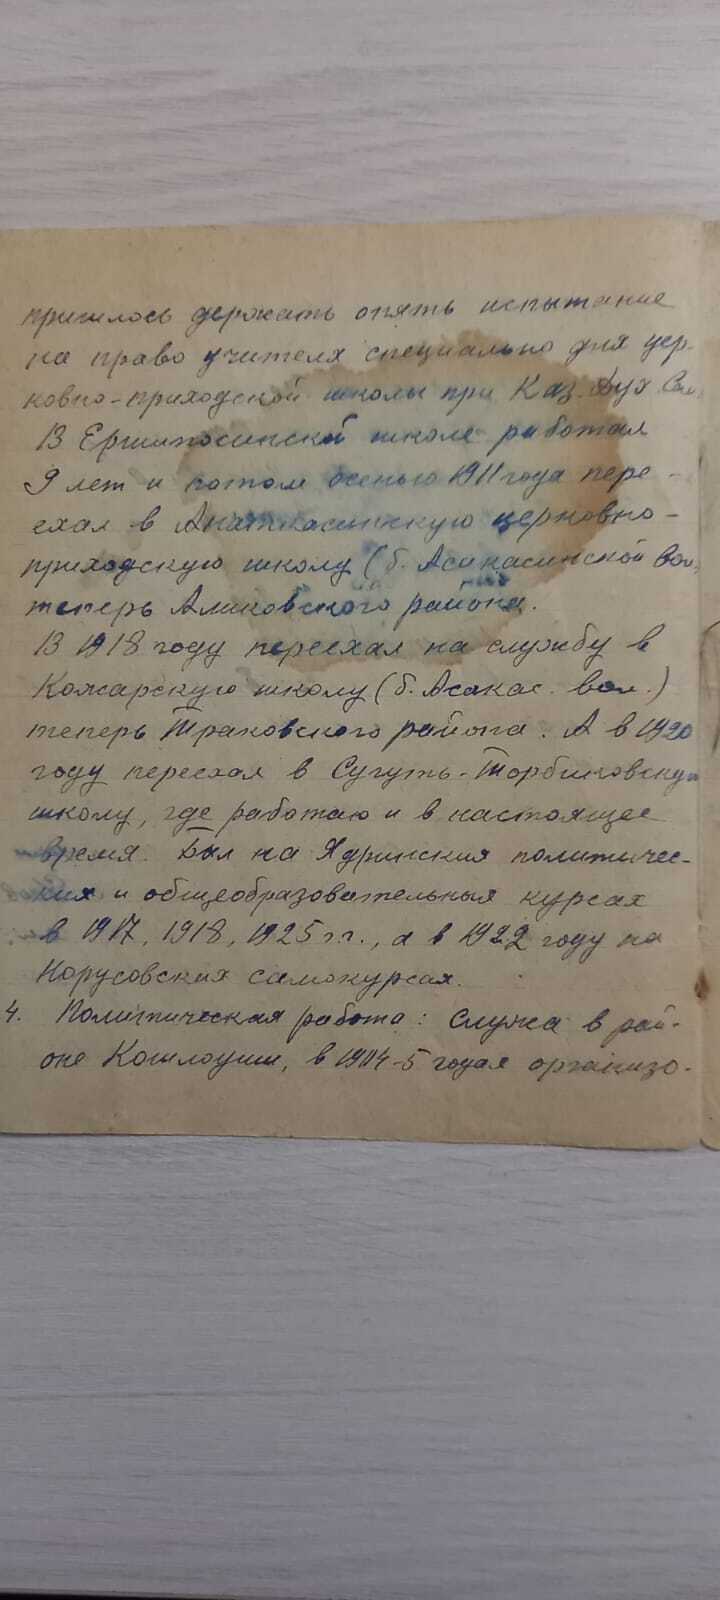 пришлось держать опять испытание
на право учителя специально для цер-
ковно-приходской школы при Каз. Дух. Сем.
В Ершипосинской школе работал
9 лет и потом осенью 1911 года пере-
ехал в Анаткасинскую церковно-
приходскую школу (б. Асакасинской вол.,
теперь Аликовского района.
В 1918 году переехал на службу в
Кожарскую школу (б. Асакас. вол.)
теперь Траковского района. А в 1920
году переехал в Сугуть-Торбиковскую
школу, где работаю и в настоящее
время. Был на Ядринских политичес-
ких и общеобразовательных курсах
в 1917, 1918, 1925 г.г., а в 1922 году на
Норусовских самокурсах.
4. Политическая работа: Служа в рай-
оне Кошлоуши, в 1904-5 годах организо-